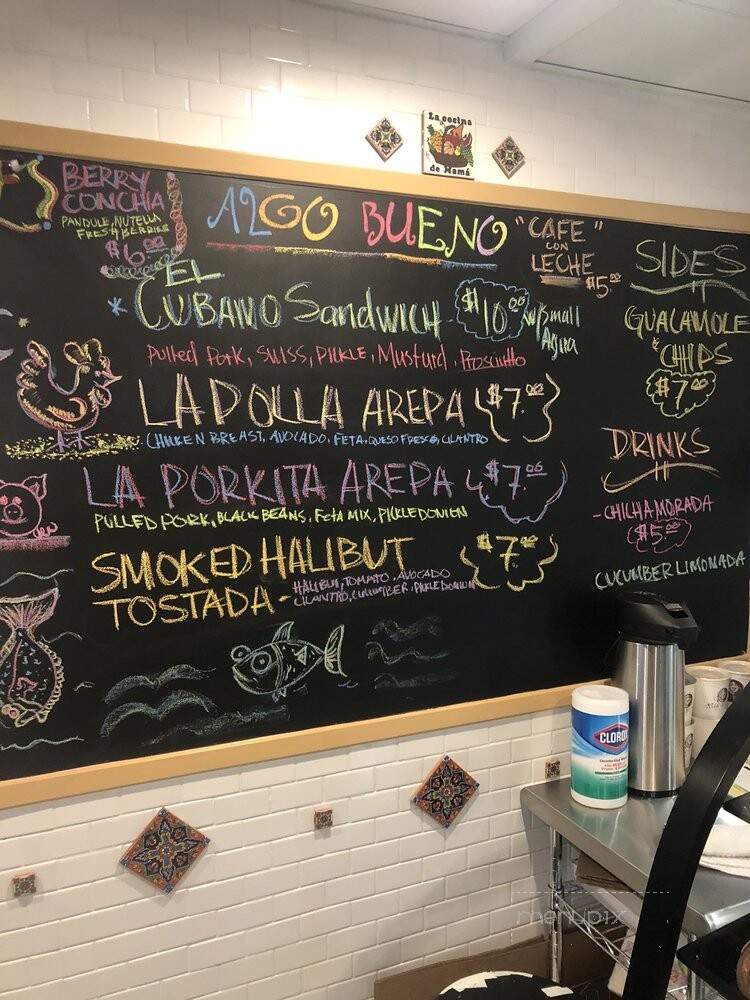 La cocina
de Mamá
BERRY
CONCHA
PANDULE, NUTELLA
FRESH BERRIES
$6.00
ALGO BUENO
"CAFE
CON
LECHE"
$5.00
EL
* CUBANO SandWICH $10.00 w/Small
Agua
Pulled Pork, SWISS, PICKLE, Mustard, Prosciutto
LA POLLA AREPA $7.00
CHICKEN BREAST, AVOCADO, FETA, QUESO FRESCO, CILANTRO
LA PORKITA AREPA $7.00
PULLED PORK, BLACK BEANS, FETA MIX, PICKLED ONION
SMOKED HALIBUT $7.00
TOSTADA - HALIBUT, TOMATO, AVOCADO
CILANTRO, CUCUMBER, PICKLED ONION
SIDES
GUACAMOLE
& CHIPS
$7.00
DRINKS
- CHICHA MORADA
$5.00
CUCUMBER LIMONADA
CLOROX
menupix